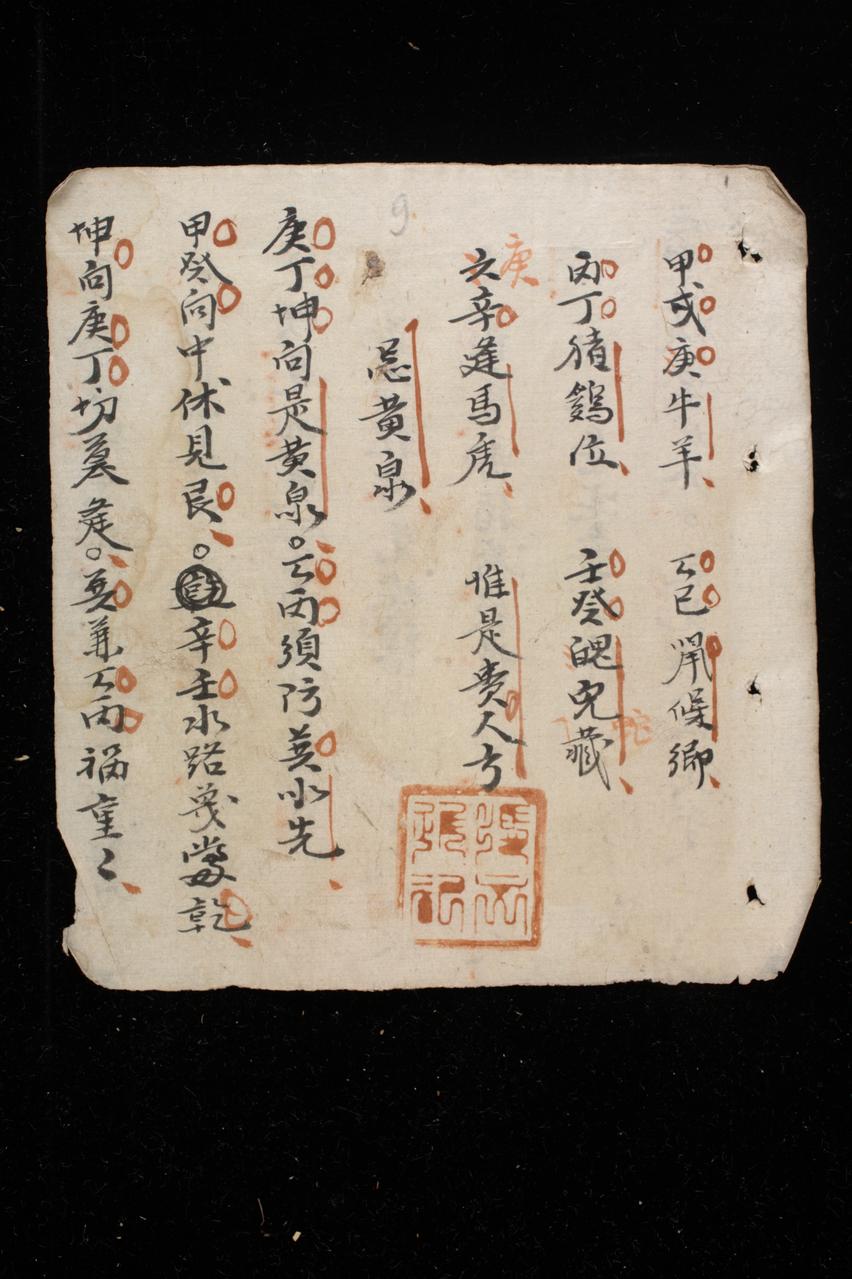 甲戊庚牛羊 乙巳䑕候鄉
丙丁猪鷄位 壬癸䰟兜藏 蛇
六辛逢馬虎 惟是貴人方 庚
忌黄泉
庚丁坤向是黄泉。乙丙須防巽水先
甲癸向中休見艮。辛壬水路𢘆當乾
坤向庚丁切莫逢。巽兼乙丙禍重〻
9